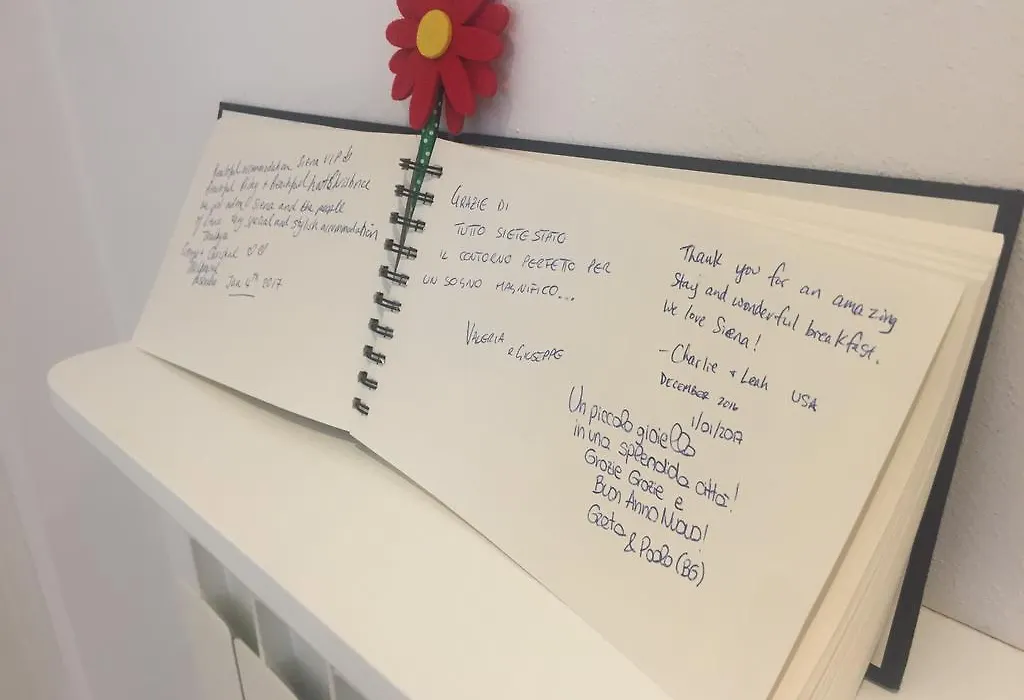 Beautiful accommodation Siena VIP
beautiful + beautiful
we Siena and the people
of very special and stylish accommodation
Jan 4th 2017
GRAZIE DI
TUTTO SIETE STATO
IL CONTORNO PERFETTO PER
UN SOGNO MAGNIFICO...
VALERIA
e GIUSEPPE
Thank you for an amazing
stay and wonderful breakfast.
We love Siena!
-Charlie + Leah USA
DECEMBER 2016
1/01/2017
Un piccolo gioiello
in una splendida città!
Grazie Grazie e
Buon Anno Nuovo!
Greta
& Paolo (BG)